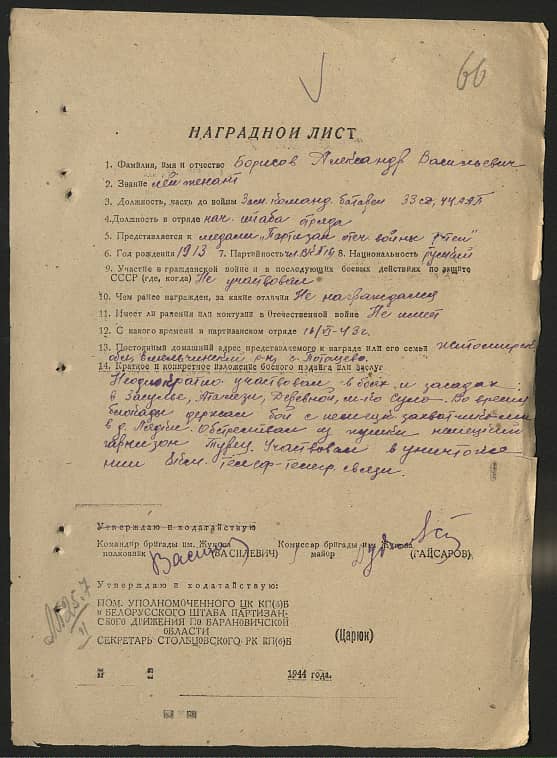 66
НАГРАДНОЙ ЛИСТ
1. Фамилия, имя и отчество Борисов Александр Васильевич
2. Звание лейтенант
3. Должность, часть до войны Зам. команд. батареи 33 сд, 44 ЛАП
4. Должность в отряде нач. штаба отряда
5. Представляется к медали „Партизан. отеч. войны
6. Год рождения 1913 7. Партийность чл. ВКП(б) 8. Национальность русский
9. Участие в гражданской войне и в последующих боевых действиях по защите
СССР (где, когда) Не участвовал
10. Чем ранее награжден, за какие отличия Не награждался
11. Имеет ли ранения или контузии в Отечественной войне Не имеет
12. С какого времени в партизанском отряде 43 г.
13. Постоянный домашний адрес представляемого к награде или его семьи Житомирск
обл. р-н, с. Потацево.
14. Краткое и конкретное изложение боевого подвига или заслуг
Неоднократно участвовал в боях и засадах:
в Засулье, Деревной, м-ко Сула. Во время
блокады держал бой с немецк. захватчиками
в д. Обстреливал из пушки немецкий
гарнизон Турец. Участвовал в уничтоже-
нии телеф-телегр. связи.
Утверждаю и ходатайствую
Командир бригады им. Жукова Комиссар бригады им. Жукова
полковник (ВАСИЛЕВИЧ) майор (ГАЙСАРОВ)
Утверждаю и ходатайствую:
ПОМ. УПОЛНОМОЧЕННОГО ЦК КП(б)Б
и БЕЛОРУССКОГО ШТАБА ПАРТИЗАН-
СКОГО ДВИЖЕНИЯ ПО БАРАНОВИЧСКОЙ
ОБЛАСТИ
СЕКРЕТАРЬ СТОЛБЦОВСКОГО РК КП(б)Б
(Царюк)
1944 года.